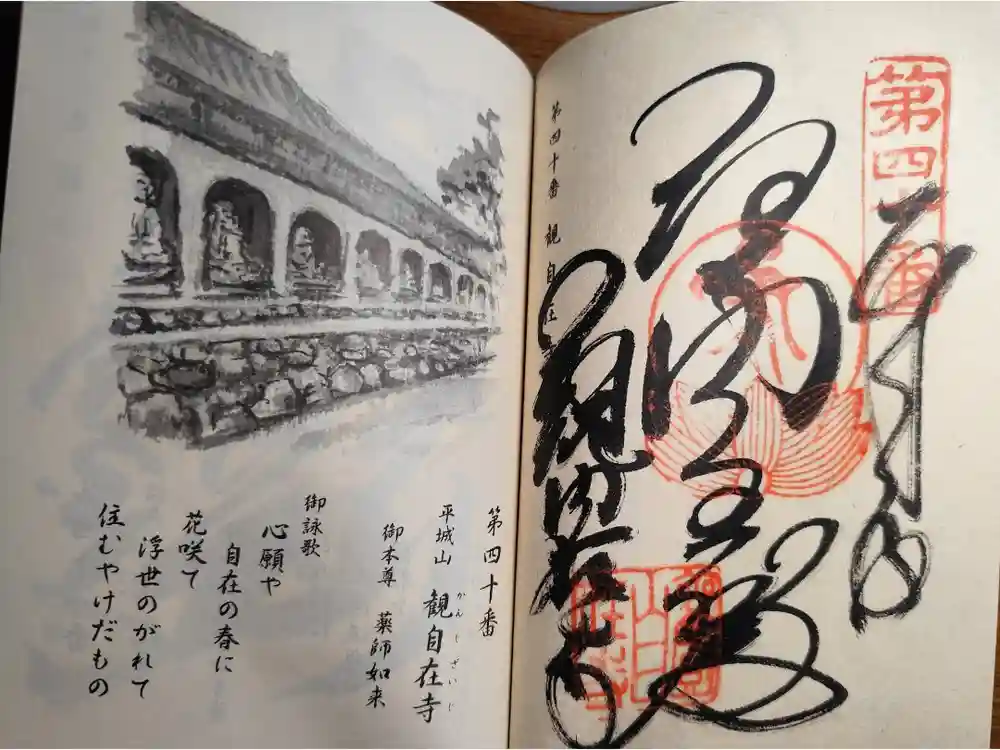 第四十番
奉納
観自在寺
第四十番 観自在
第四十番
平城山 観自在寺
かんじざいじ
御本尊 薬師如来
御詠歌
心願や
自在の春に
花咲て
浮世のがれて
住むやけだもの